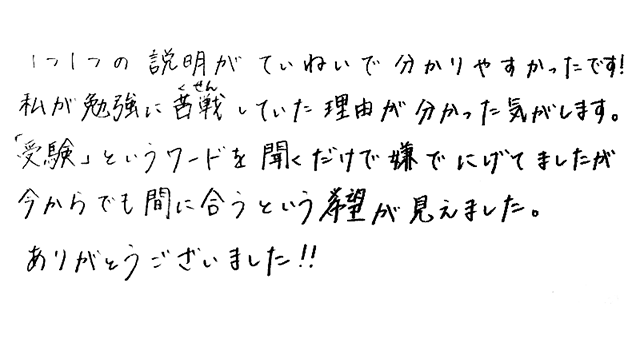 1つ1つの説明がていねいで分かりやすかったです!
私が勉強に苦戦していた理由が分かった気がします。
くせん
「受験」というワードを聞くだけで嫌でにげてましたが
今からでも間に合うという希望が見えました。
ありがとうございました!!